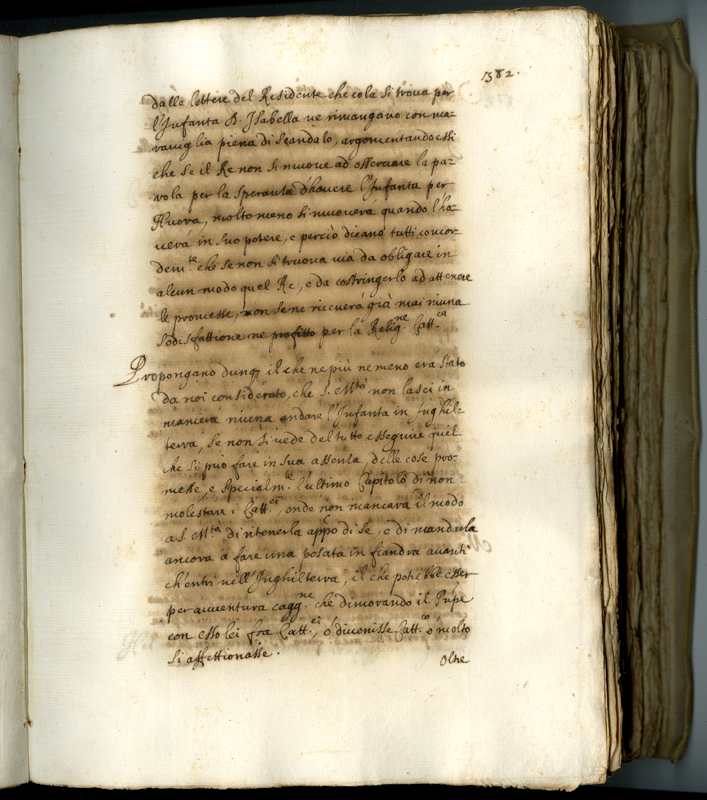 382.
dalle lettere del Residente che cola si troua per
l'Infanta D. Isabella ne rimangano con ma=
rauiglia piena di scandalo, argomentando essi
che se il Re non si muoue ad osseruare la pa=
rola per la speranza d'hauere l'Infanta per
Nuora, molto meno si muouerà quando l'ha=
uerà in suo potere, e perciò dicano tutti concor=
dem.te che se non si truoua uia da obligare in
alcun modo quel Re, e da costringerlo ad attenere
le promesse, non se ne riceuerà già mai niuna
sodisfattione ne profitto per la Relig.ne Catt.ca
Propongano dunq, il che ne più ne meno era stato
da noi considerato, che S. M.tà non lasci in
maniera niuna andare l'Infanta in Inghil=
terra, se non si uede del tutto esseguire quel
che si può fare in sua assenza, delle cose pro=
messe, e specialm.te l'ultimo Capitolo di non
molestar i Catt.ci, onde non mancarà il modo
a S. M.tà di ritenerla app.o di se, e di mandarla
ancora a fare una posata in fiandra auanti
ch'entri nell'Inghilterra, il che potrebbe esser
per auuentura cagg.ne che dimorando il Prĩpe
con esso lei fra Catt.ci, ò diuenisse Catt.co ò molto
si affettionasse.
Oltre